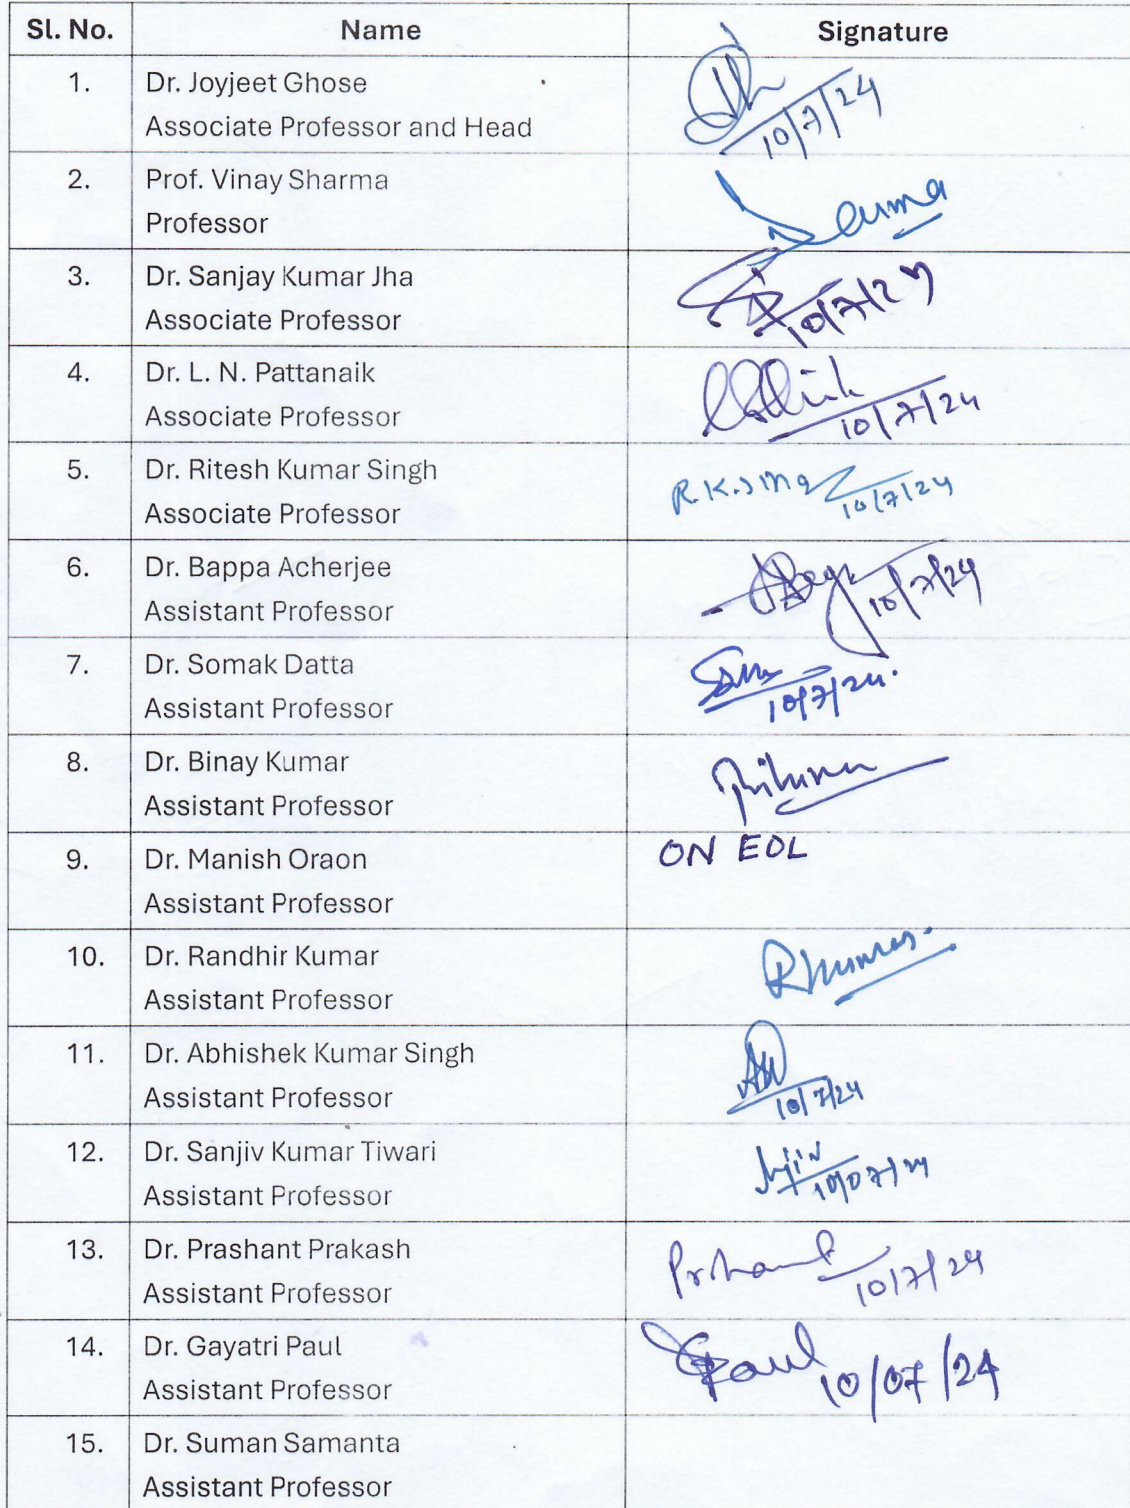 Sl. No. Name Signature
1. Dr. Joyjeet Ghose
Associate Professor and Head
10/7/24
2. Prof. Vinay Sharma
Professor
3. Dr. Sanjay Kumar Jha
Associate Professor
10/7/24
4. Dr. L. N. Pattanaik
Associate Professor
10/7/24
5. Dr. Ritesh Kumar Singh
Associate Professor
R.K.Sing 10/7/24
6. Dr. Bappa Acherjee
Assistant Professor
10/7/24
7. Dr. Somak Datta
Assistant Professor
10/7/24.
8. Dr. Binay Kumar
Assistant Professor
9. Dr. Manish Oraon ON EOL
Assistant Professor
10. Dr. Randhir Kumar
Assistant Professor
11. Dr. Abhishek Kumar Singh
Assistant Professor
10/7/24
12. Dr. Sanjiv Kumar Tiwari
Assistant Professor
10/07/24
13. Dr. Prashant Prakash
Assistant Professor
10/7/24
14. Dr. Gayatri Paul
Assistant Professor
Paul 10/07/24
15. Dr. Suman Samanta
Assistant Professor